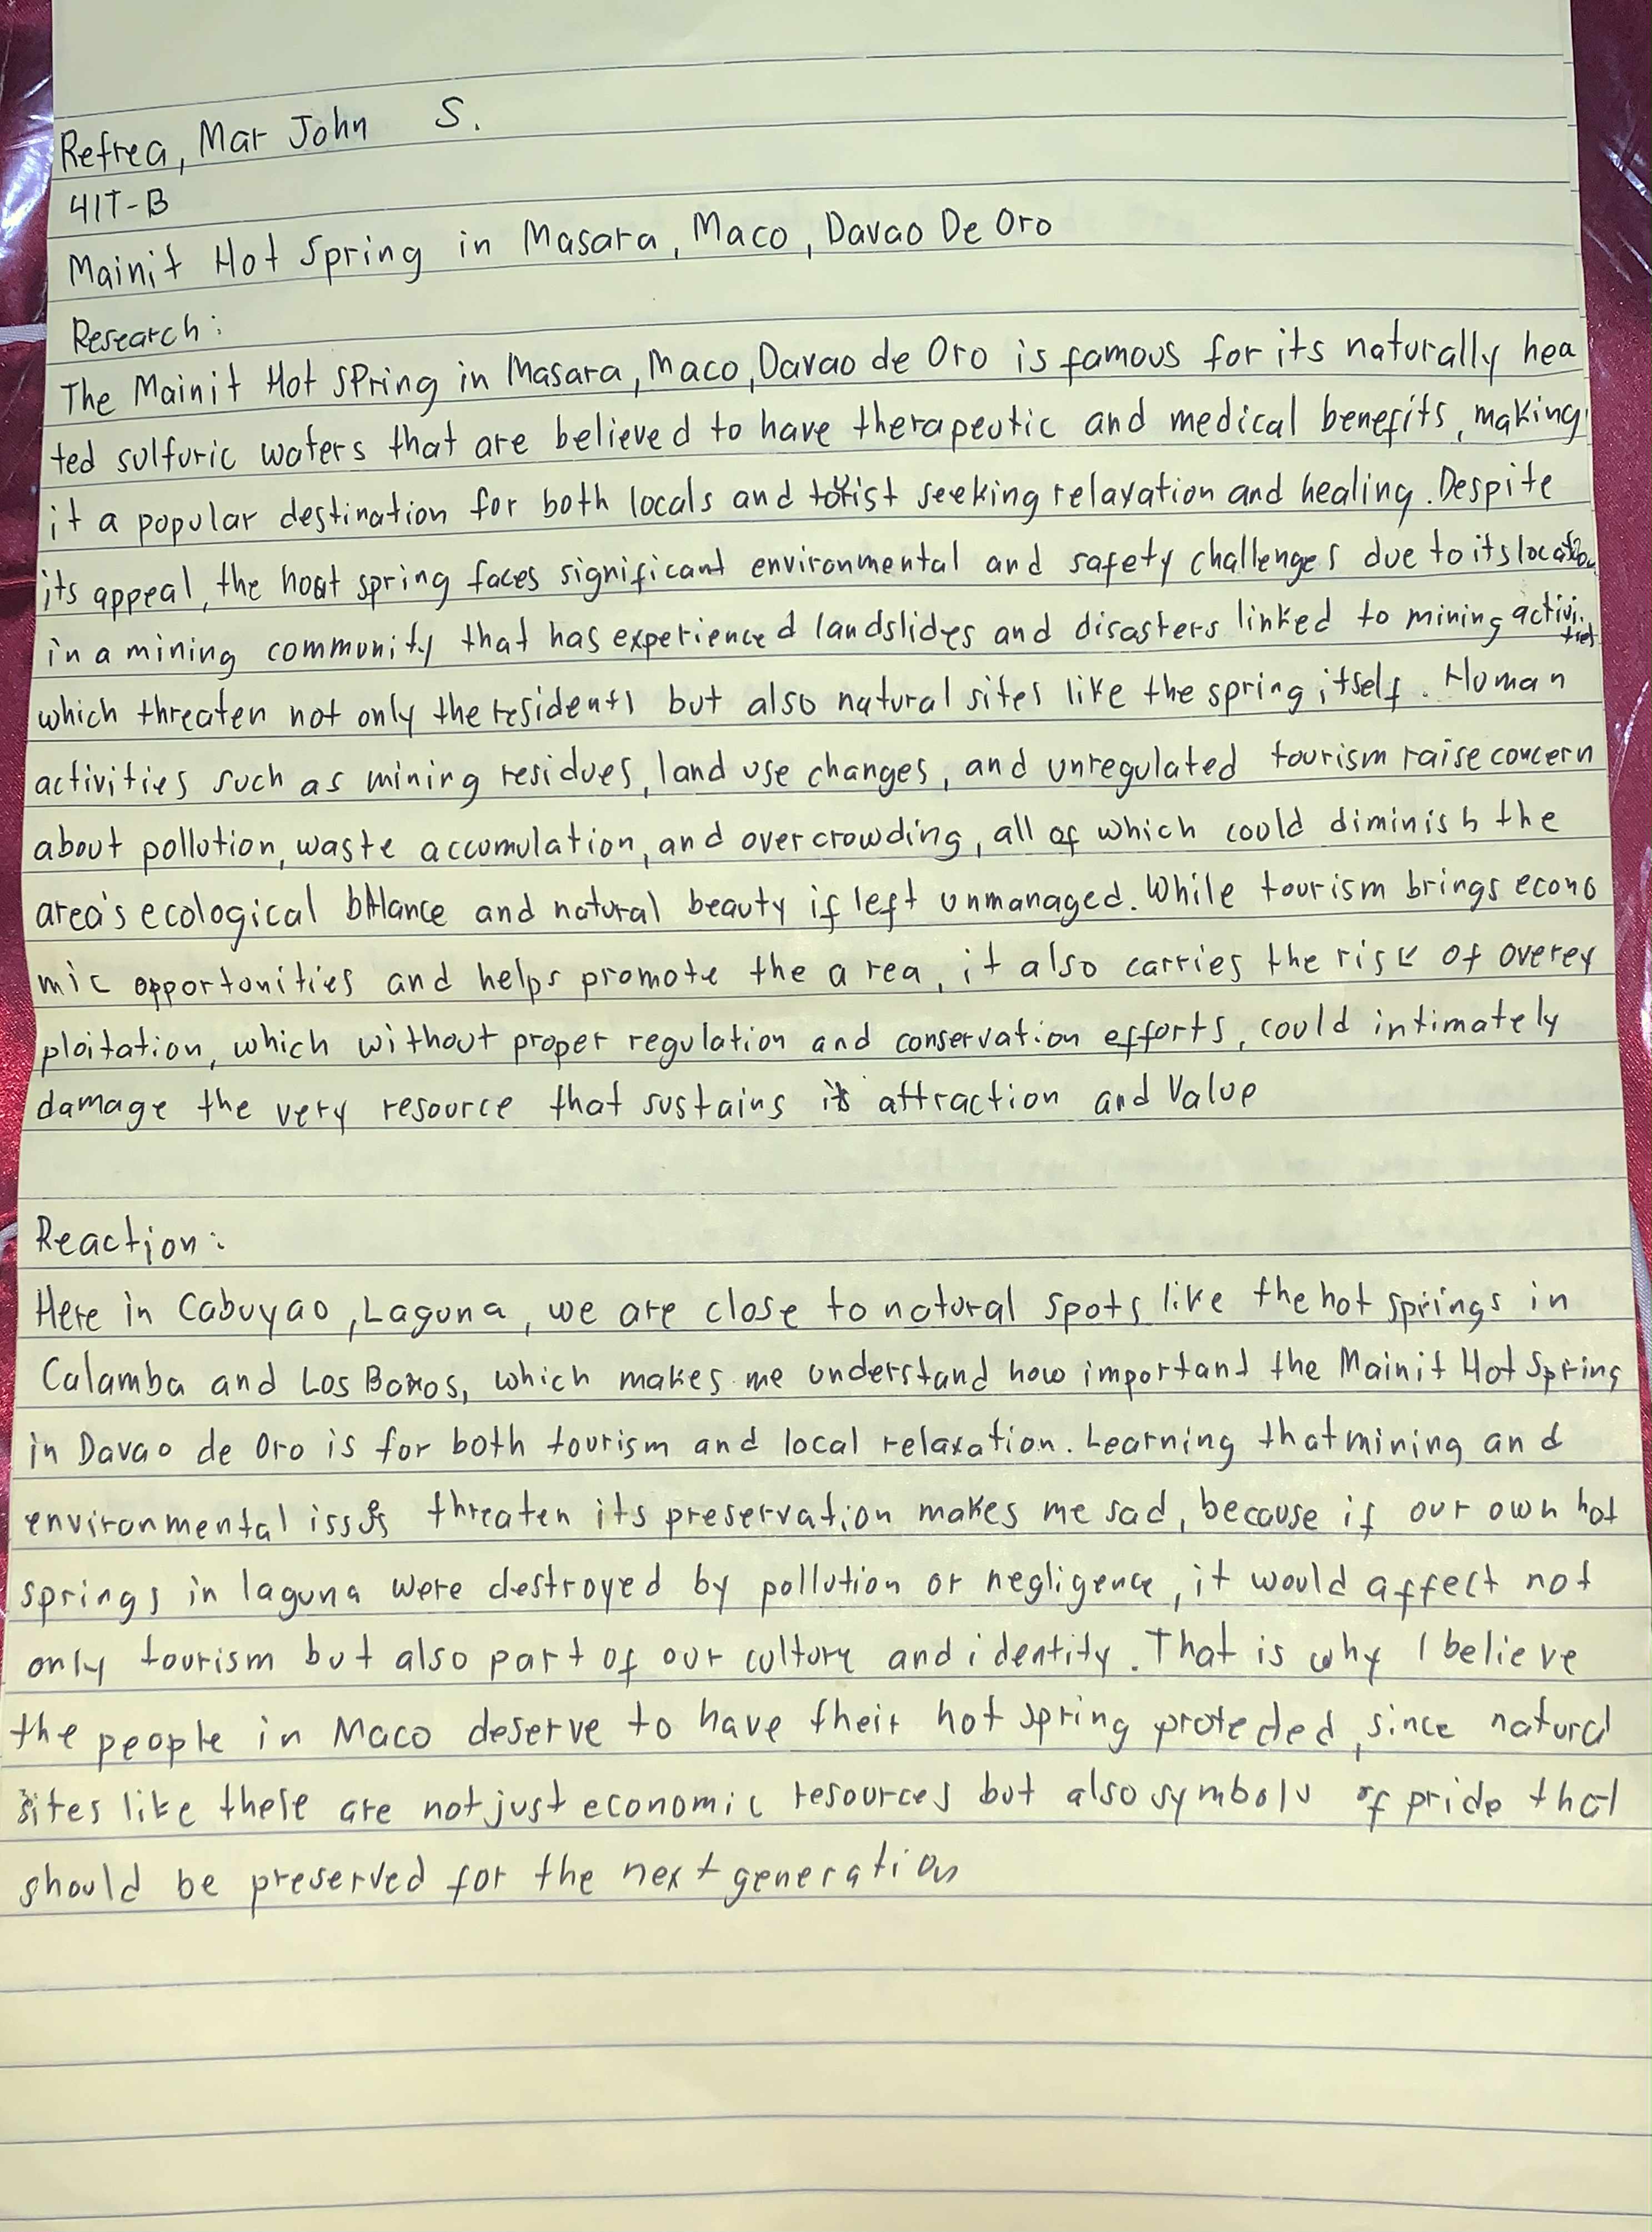 Refrea, Mar John S.
4IT-B
Mainit Hot Spring in Masara, Maco, Davao De Oro
Research:
The Mainit Hot Spring in Masara, Maco, Davao de Oro is famous for its naturally hea
ted sulfuric waters that are believed to have therapeutic and medical benefits, making
it a popular destination for both locals and tourist seeking relaxation and healing. Despite
its appeal, the hot spring faces significant environmental and safety challenges due to its location
in a mining community that has experienced landslides and disasters linked to mining activities
which threaten not only the residents but also natural sites like the spring itself. Human
activities such as mining residues, land use changes, and unregulated tourism raise concern
about pollution, waste accumulation, and overcrowding, all of which could diminish the
area's ecological balance and natural beauty if left unmanaged. While tourism brings econo
mic opportunities and helps promote the area, it also carries the risk of overex
ploitation, which without proper regulation and conservation efforts, could intimately
damage the very resource that sustains its attraction and value
Reaction:
Here in Cabuyao, Laguna, we are close to natural spots like the hot springs in
Calamba and Los Banos, which makes me understand how important the Mainit Hot Spring
in Davao de Oro is for both tourism and local relaxation. Learning that mining and
environmental issues threaten its preservation makes me sad, because if our own hot
springs in laguna were destroyed by pollution or negligence, it would affect not
only tourism but also part of our culture and identity. That is why I believe
the people in Maco deserve to have their hot spring protected, since natural
sites like these are not just economic resources but also symbols of pride that
should be preserved for the next generation